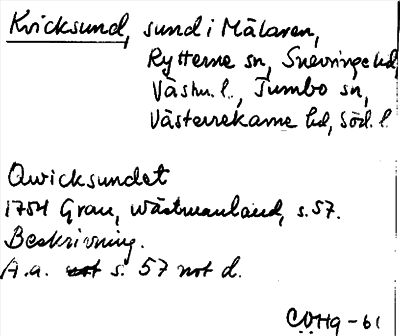 Kvicksund, sund i Mälaren,
Rytterne sn, Snevringe hd,
Västm. l., Tumbo sn,
Västerrekarne hd, Söd. l.
Qwicksundet
1754 Grau, Wästmanland, s. 57.
Beskrivning.
A.a. s. 57 not d.
COHq-61